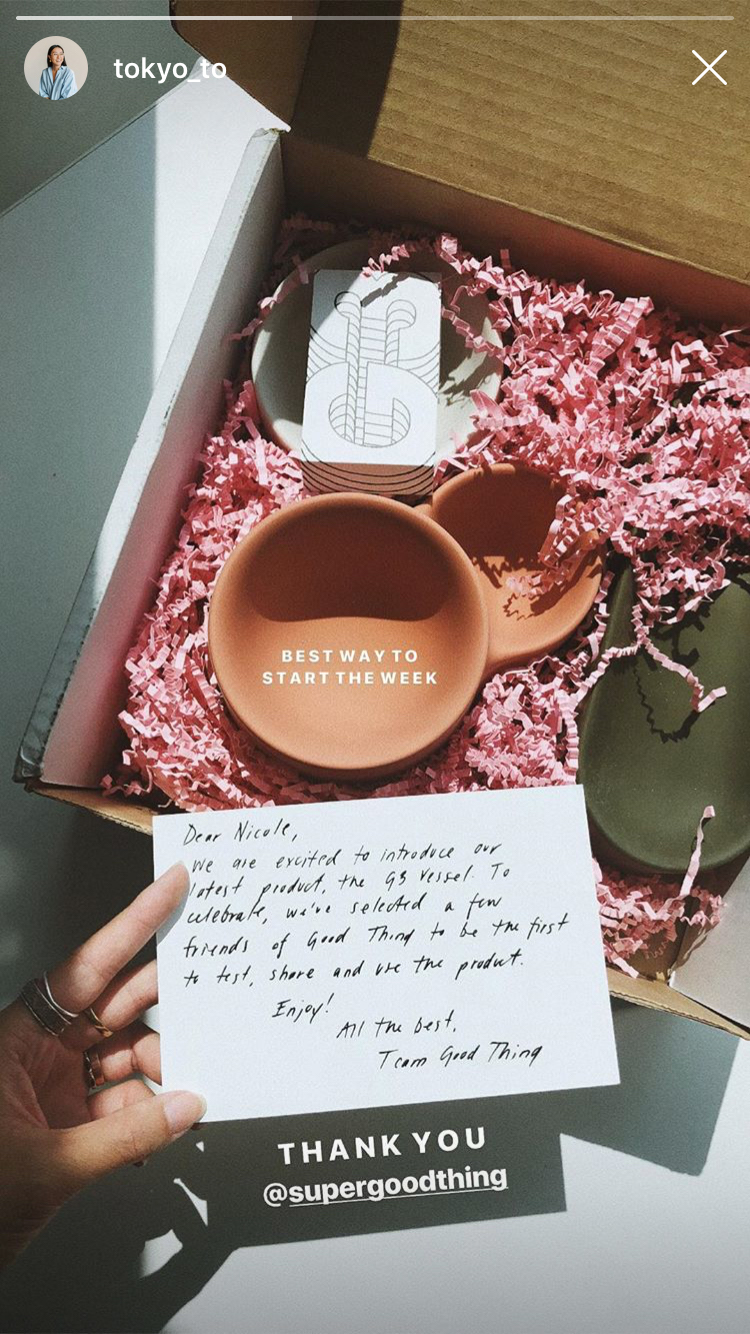 tokyo_to
BEST WAY TO
START THE WEEK
Dear Nicole,
We are excited to introduce our
latest product, the G3 Vessel. To
celebrate, we've selected a few
friends of Good Thing to be the first
to test, share and use the product.
Enjoy!
All the best,
Team Good Thing
THANK YOU
@supergoodthing